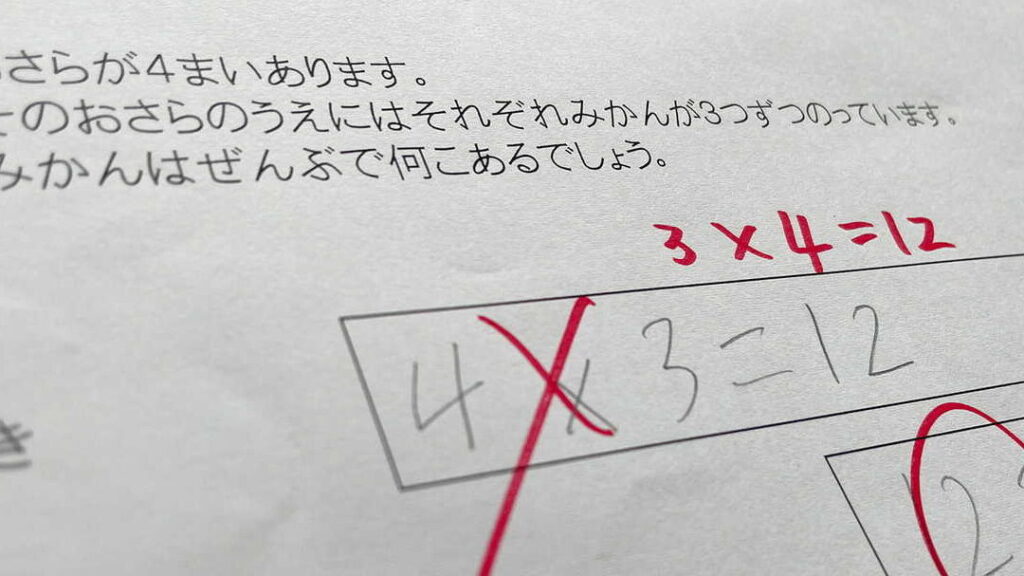 さらが4まいあります。
のおさらのうえにはそれぞれみかんが3つずつのっています。
みかんはぜんぶで何こあるでしょう。
3×4=12
4×3=12
き
2